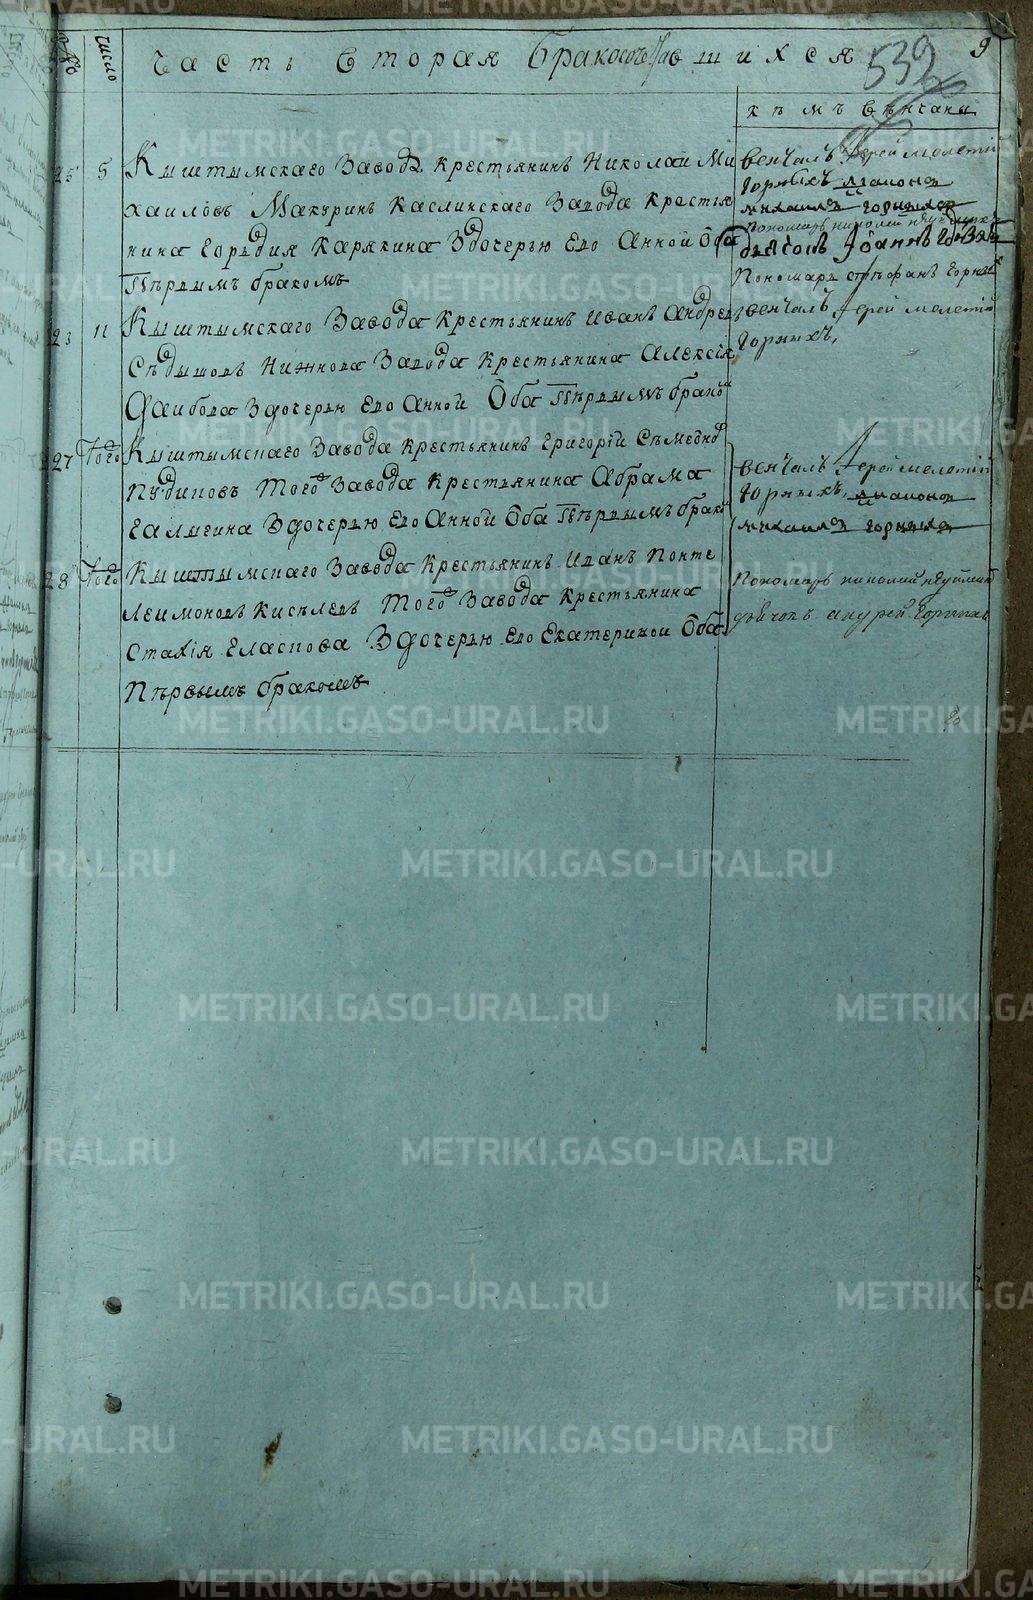 число
Часть вторая бракосочетавшихся
539
9
кѣмъ вѣнчаны
25 5 Кыштымскаго Завода крестьянинъ Николаи Ми
хаиловъ Макуринъ Каслинскаго Завода Крестья
нина Гордия Карякина Здочерью Его Анной Оба
Пѣрвымъ бракомъ
венчалъ Iерей мелетий
Горныхъ диаконъ
михаилъ горныхъ
пономаръ николай
дьячокъ Iоаннъ
Пономаръ стѣфанъ Горных
11 Кыштымскаго Завода Крестьянинъ Иванъ Андрее
Сѣдышовъ Нижнова Завода Крестьянина Алексiя
Здочерью Его Анной Оба Пѣрвымъ брако
венчалъ Iерей мелетий
Горныхъ,
27 Того Кыштымскаго Завода Крестьянинъ Григорiй
Пудиповъ Того Завода Крестьянина Абрама
Галыгина Здочерью Его Анной Оба Пѣрвымъ брако
венчалъ Iерей мелетий
Горныхъ, диаконъ
михаилъ горныхъ
28 Того Кыштымскаго Завода Крестьянинъ Иванъ Понте
леимоновъ Киселевъ Того Завода Крестьянина
Стахiя Здочерью Его Екатериной Оба
Пѣрвымъ бракомъ
Пономаръ николай
дьячокъ андрей Горных
METRIKI.GASO-URAL.RU